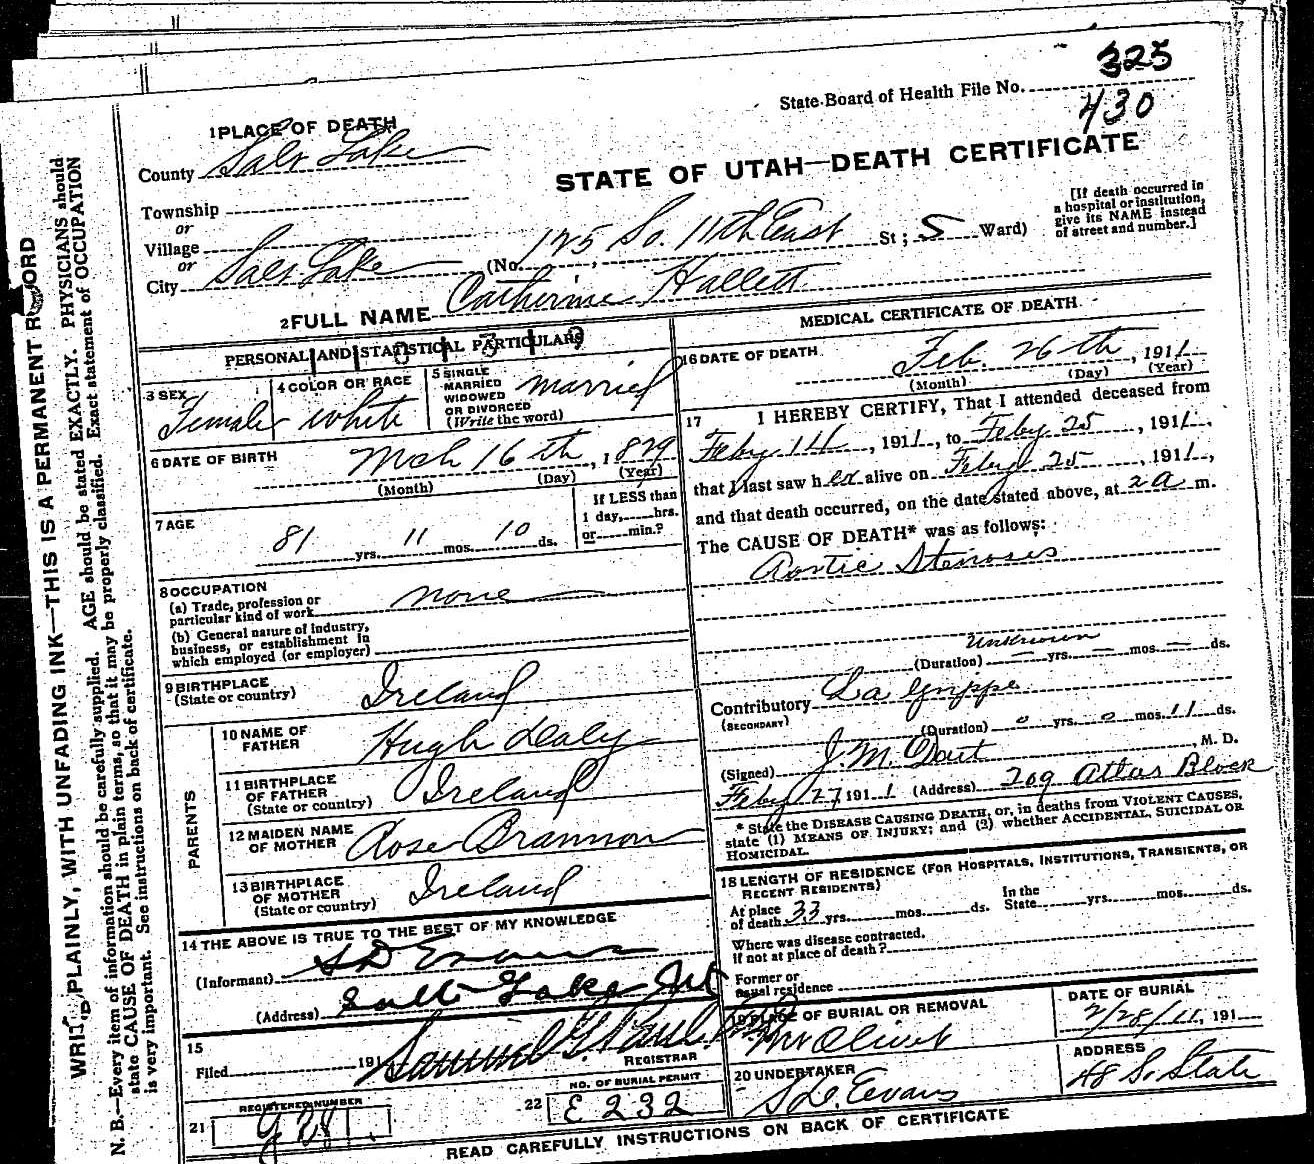 325
State Board of Health File No.
430
1 PLACE OF DEATH
County Salt Lake
STATE OF UTAH—DEATH CERTIFICATE
Township
or
Village
or
City Salt Lake (No. 125 So. 11th East St; 5 Ward)
[If death occurred in
a hospital or institution,
give its NAME instead
of street and number.]
2 FULL NAME Catherine Hallett
PERSONAL AND STATISTICAL PARTICULARS
3 SEX Female
4 COLOR OR RACE white
5 SINGLE
MARRIED
WIDOWED
OR DIVORCED
(Write the word) married
6 DATE OF BIRTH Mch 16th, 1829
(Month) (Day) (Year)
7 AGE 81 yrs. 11 mos. 10 ds.
If LESS than
1 day, hrs.
or min.?
8 OCCUPATION
(a) Trade, profession or
particular kind of work none
(b) General nature of industry,
business, or establishment in
which employed (or employer)
9 BIRTHPLACE
(State or country) Ireland
PARENTS
10 NAME OF
FATHER Hugh Daly
11 BIRTHPLACE
OF FATHER
(State or country) Ireland
12 MAIDEN NAME
OF MOTHER Rose Brannon
13 BIRTHPLACE
OF MOTHER
(State or country) Ireland
14 THE ABOVE IS TRUE TO THE BEST OF MY KNOWLEDGE
(Informant) S D Evans
(Address) Salt Lake
15
Filed 191
REGISTRAR
21 REGISTERED NUMBER
22 NO. OF BURIAL PERMIT
E 232
MEDICAL CERTIFICATE OF DEATH
16 DATE OF DEATH Feb. 26th, 1911
(Month) (Day) (Year)
17 I HEREBY CERTIFY, That I attended deceased from
Feby 14, 1911, to Feby 25, 1911,
that I last saw her alive on Feby 25, 1911,
and that death occurred, on the date stated above, at 2 a m.
The CAUSE OF DEATH* was as follows:
Aortic Stenosis
Unknown
(Duration) — yrs. — mos. — ds.
Contributory La Grippe
(SECONDARY)
(Duration) 0 yrs. 0 mos. 11 ds.
(Signed) J. M. , M. D.
Feby 27 1911 (Address) 209 Atlas Block
* State the DISEASE CAUSING DEATH, or, in deaths from VIOLENT CAUSES,
state (1) MEANS OF INJURY; and (2) whether ACCIDENTAL, SUICIDAL OR
HOMICIDAL.
18 LENGTH OF RESIDENCE (FOR HOSPITALS, INSTITUTIONS, TRANSIENTS, OR
RECENT RESIDENTS)
At place
of death 33 yrs. mos. ds.
In the
State yrs. mos. ds.
Where was disease contracted,
if not at place of death?
Former or
usual residence
19 PLACE OF BURIAL OR REMOVAL
Mt Olivet
DATE OF BURIAL
2/28/11, 191
20 UNDERTAKER
S D. Evans
ADDRESS
48 S. State
READ CAREFULLY INSTRUCTIONS ON BACK OF CERTIFICATE
WRITE PLAINLY, WITH UNFADING INK—THIS IS A PERMANENT RECORD
N. B.—Every item of information should be carefully supplied. AGE should be stated EXACTLY. PHYSICIANS should
state CAUSE OF DEATH in plain terms, so that it may be properly classified. Exact statement of OCCUPATION
is very important. See instructions on back of certificate.